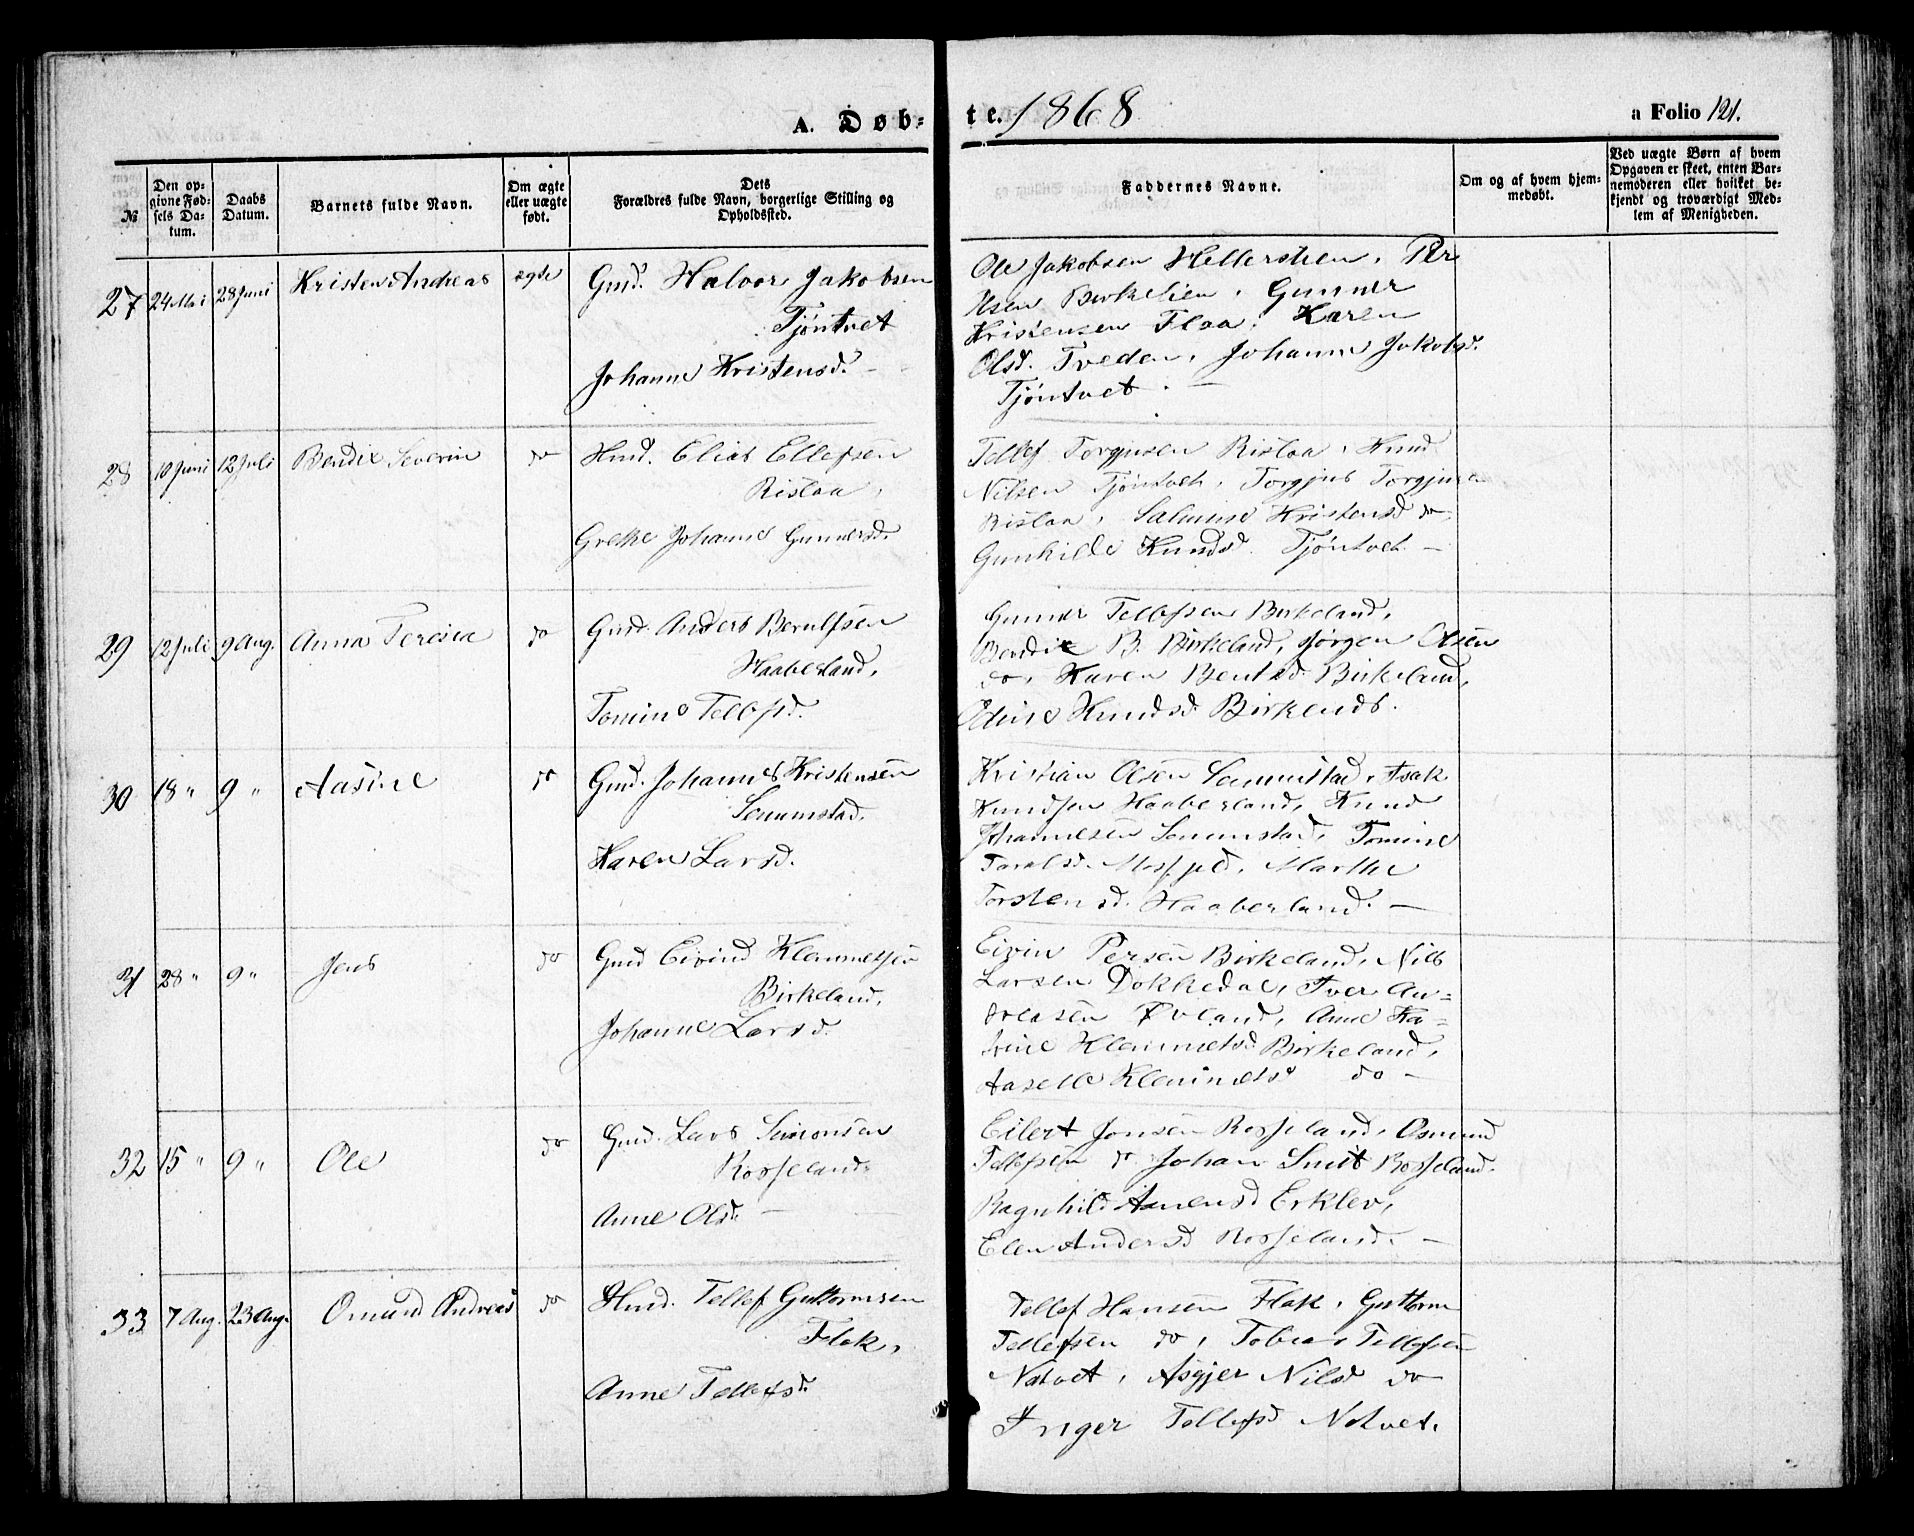 A. Døb-
te. 1868
a Folio 121.
№
Den op-
givne Fød-
sels Da-
tum.
Daabs
Datum.
Barnets fulde Navn.
Om ægte
eller uægte
født.
Dets
Forældres fulde Navn, borgerlige Stilling og
Opholdssted.
Faddernes Navne.
Om og af hvem hjem-
medøbt.
Ved uægte Børn af hvem
Opgaven er skeet, enten Bar-
nemoderen eller hvilket be-
kjendt og troværdigt Med-
lem af Menigheden.
27 24 Mai 28 Juni Kristen Andreas ægte Gmd. Halvor Jakobsen
Tjøntvet
Johanne Kristensd. -
Ole Jakobsen Hellershen, Per
Olsen Birkelien, Gunner
Kristensen Flaa, Karen
Olsd. Tveden, Johanne Jakobsd.
Tjøntvet. -
28 10 Juni 12 Juli Bendix Severin do Hmd. Elias Ellefsen
Rislaa,
Grethe Johanne Gunnersd.
Tellef Torgjusen Rislaa, Knud
Nilsen Tjøntvet, Torgjus Torgjusen
Rislaa, Kristensd do,
Gunhilde Knudsd. Tjøntvet -
29 12 Juli 9 Aug. Anna Teresia do Gmd. Anders Berulfsen
Haaberland,
Tomine Tellefsd.
Gunner Tellefsen Birkeland,
Bendix B. Birkeland, Jørgen Olsen
do, Karen Bentsd. Birkeland,
Knudsd Birkelands.
30 18 " 9 " Aasine do Gmd. Johannes Kristensen
Senumstad,
Karen Larsd.
Kristian Olsen Senumstad, Isak
Knudsen Haaberland, Knud
Johannesen Senumstad, Tomine
Taralsd. Mosfjeld, Marthe
Torstensd. Haaberland. -
31 28 " 9 " Jens do Gmd Eivind Klemmetsen
Birkeland,
Johanne Larsd.
Eivin Persen Birkeland, Nils
Larsen Dokkedal, Iver An-
dreasen Øvland, Anne Ka-
trine Klemmetsd. Birkeland,
Aaselle Klemmetsd do -
32 15 " 9 " Ole do Gmd. Lars Simonsen
Rosseland.
Anne Olsd. -
Eilert Jonsen Rosseland, Osmund
Tellefsen do Johan Rosseland.
Ragnhild Aanensd Erklev,
Elen Andersd Rosseland. -
33 7 Aug. 23 Aug. Omund Andreas do Hmd. Tellef Guttormsen
Flak,
Anne Tellefsd.
Tellef Hansen Flak, Guttorm
Tellefsen do, Tobias Tellefsen
Natvet, Asgjer Nilsd do
Inger Tellefsd Natvet.